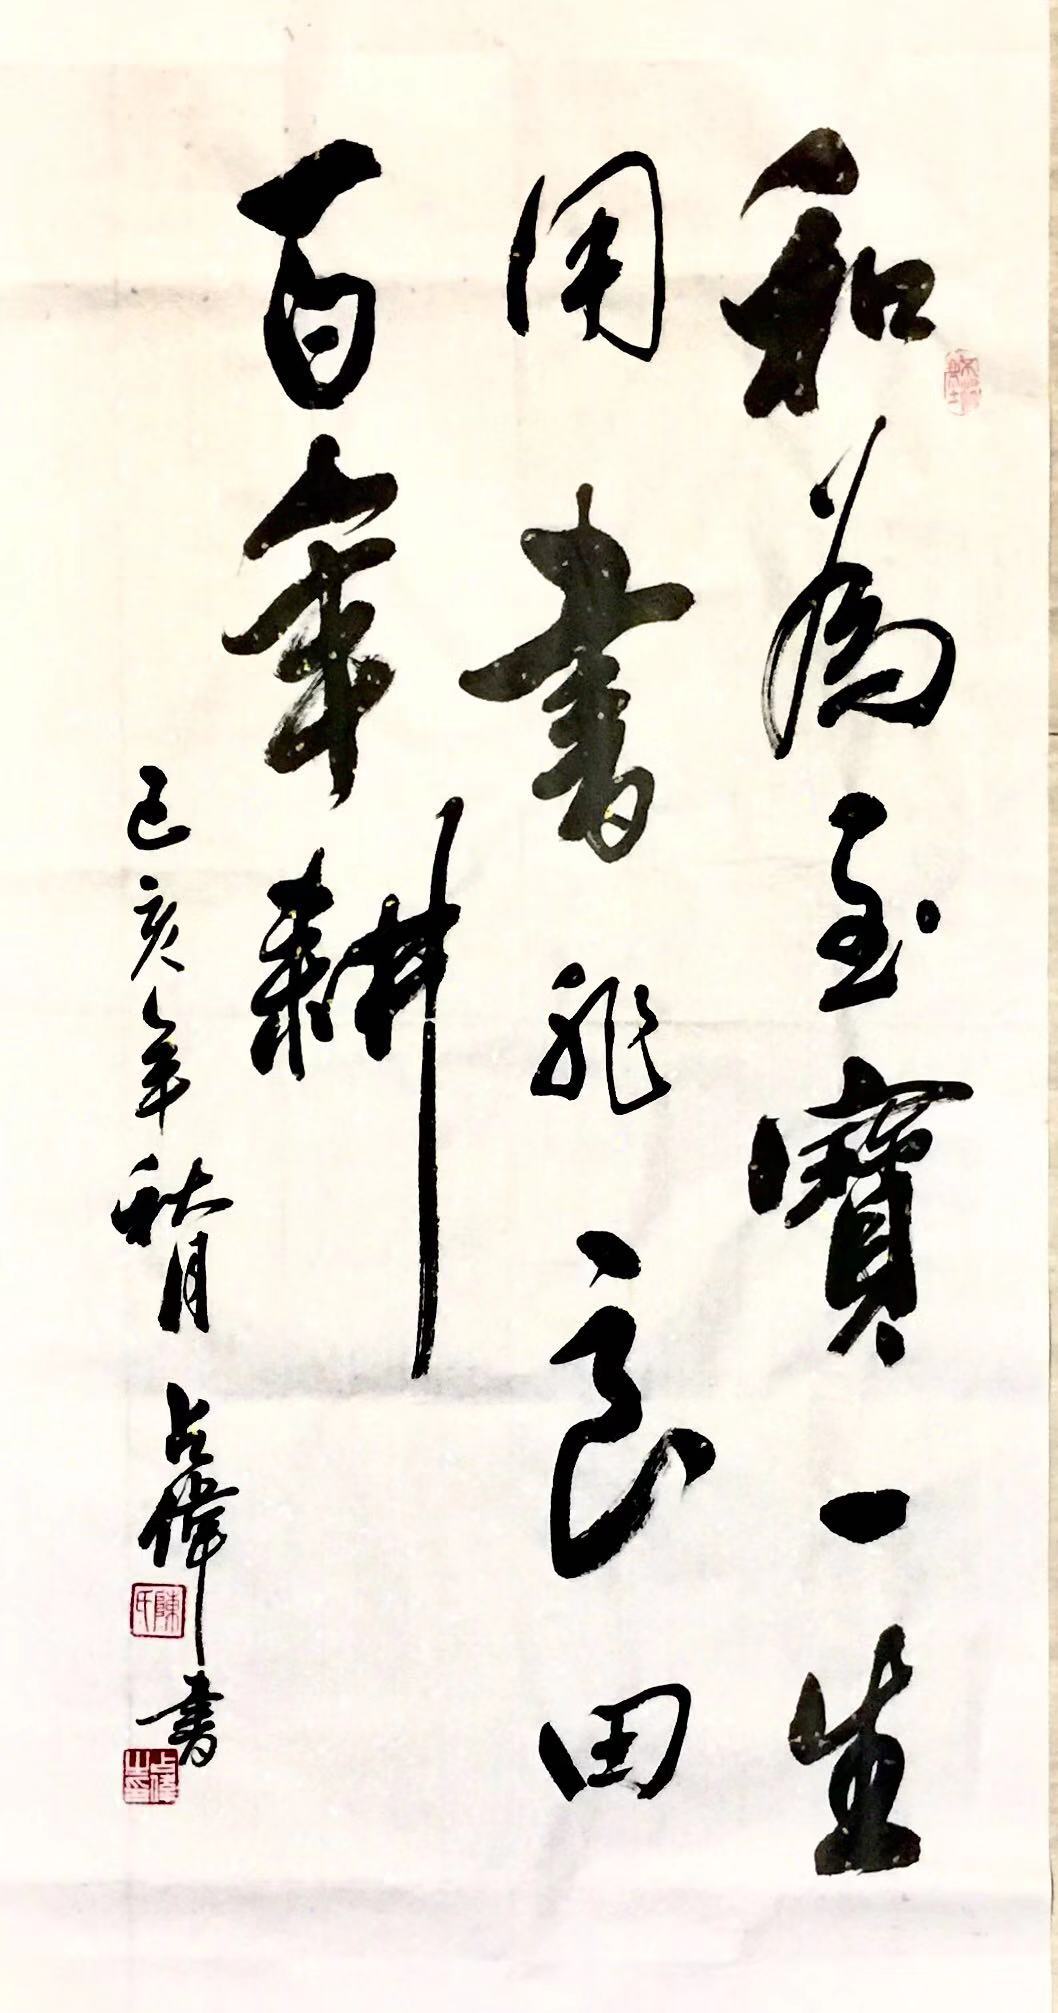 和為至寶一生
用書作良田
百年耕
己亥年秋月占偉書
陳氏
占偉之印